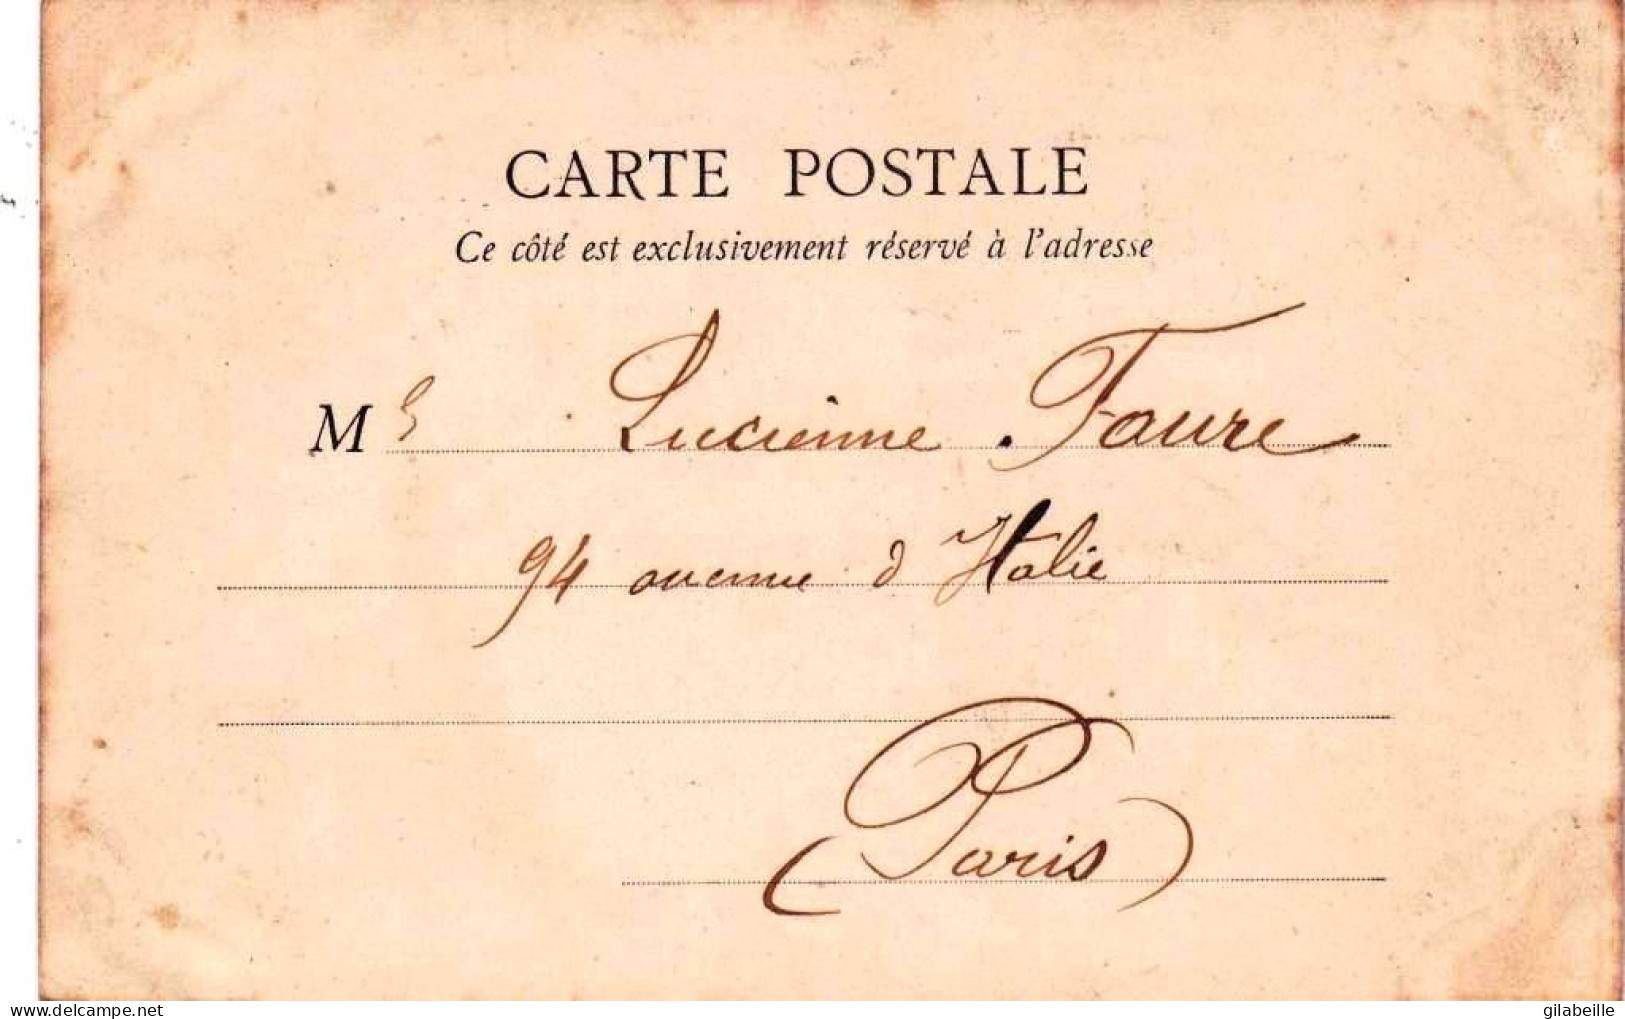 CARTE POSTALE
Ce côté est exclusivement réservé à l'adresse
M Lucienne . Faure
94 avenue d Italie
(Paris)
gilabeille